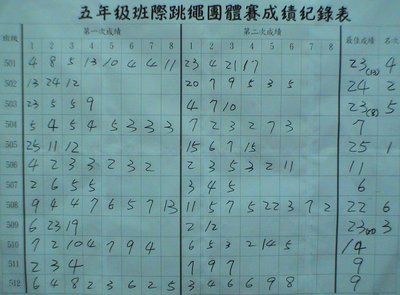 五年级班際跳繩團體賽成績纪錄表
班級 第一次成績 第二次成績 最佳成績 名次
1 2 3 4 5 6 7 8 1 2 3 4 5 6 7 8
501 4 8 5 13 10 4 4 11 23 4 21 17 23(13) 4
502 13 24 12 20 7 9 5 3 5 24 2
503 23 5 5 9 4 7 10 23(8) 5
504 5 4 5 4 5 3 3 3 7 2 3 2 7 3 7
505 25 11 12 15 6 7 15 25 1
506 4 2 3 3 2 3 2 2 3 5 3 2 11 11
507 2 6 5 5 3 4 5 6
508 9 4 4 7 6 5 7 13 11 5 7 5 22 3 7 2 22 6
509 6 23 19 2 12 23 3
510 7 2 10 4 7 9 4 6 5 3 2 14 5 14
511 2 3 4 7 9 7 9
512 6 4 8 2 3 6 2 5 3 4 6 6 9 8 9